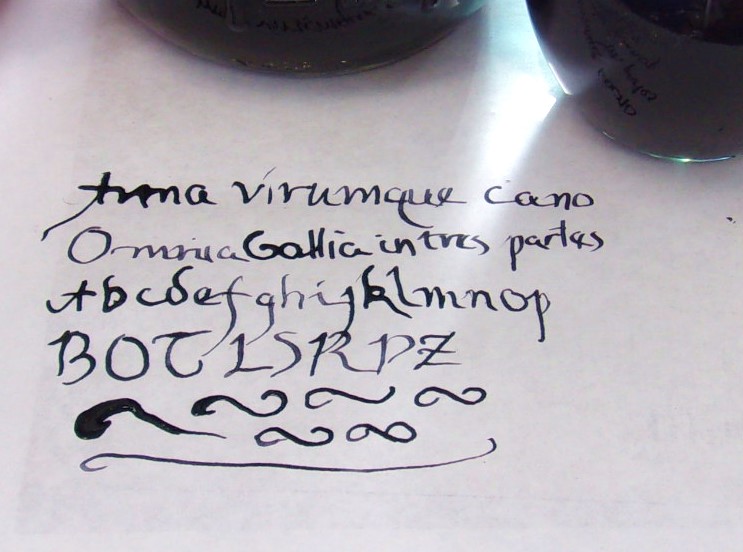 Arma virumque cano
Omnia Gallia in tres partes
Abcdefghijklmnop
BOTLSRPZ